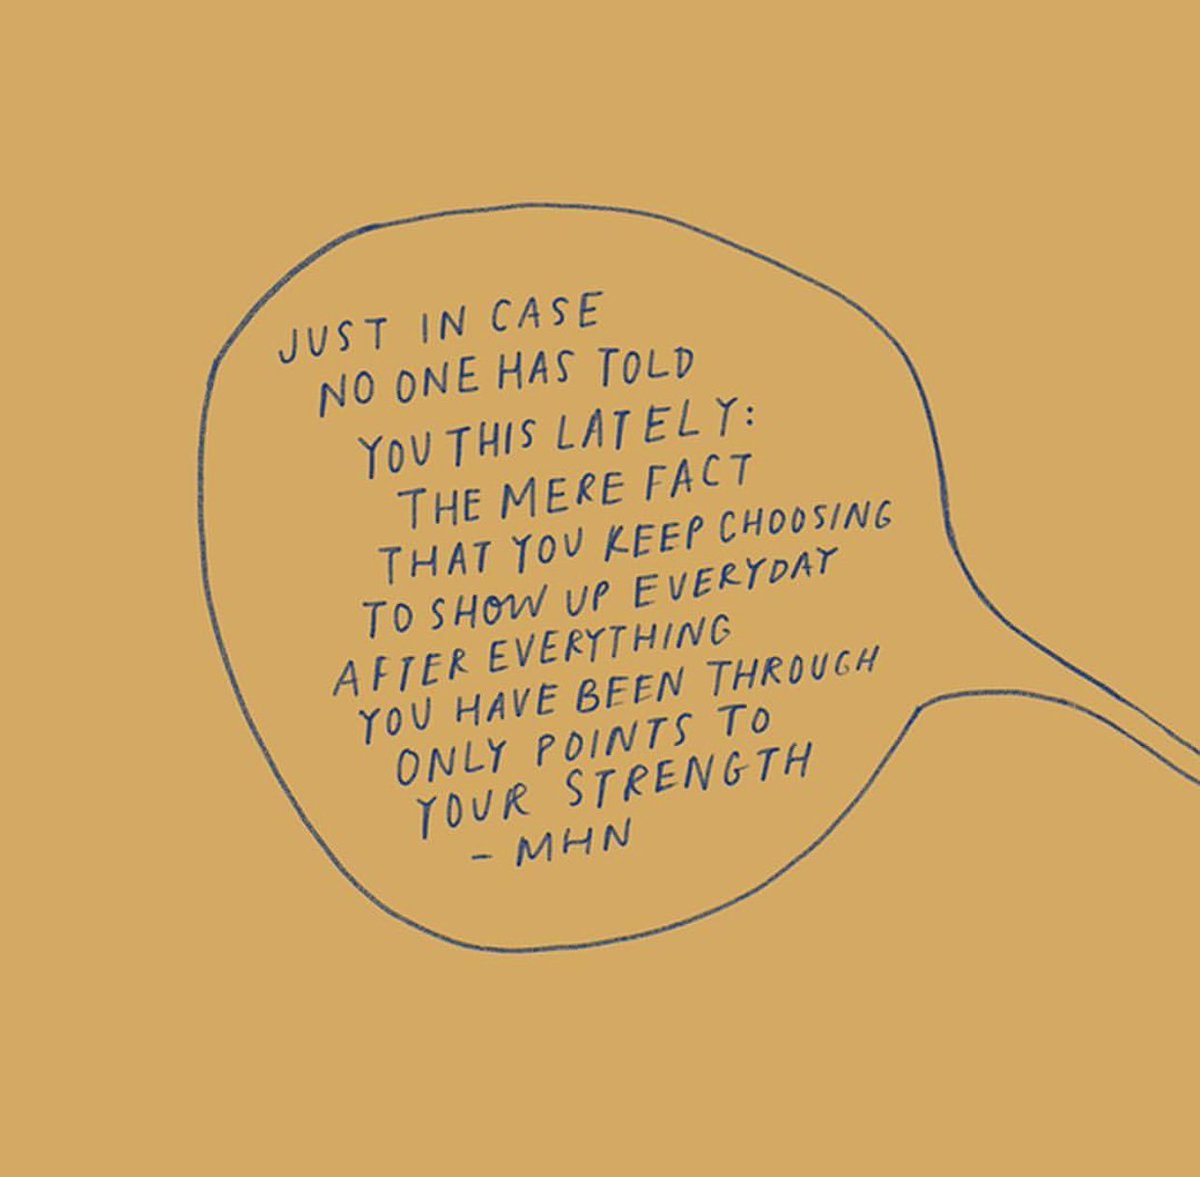 JUST IN CASE
NO ONE HAS TOLD
YOU THIS LATELY:
THE MERE FACT
THAT YOU KEEP CHOOSING
TO SHOW UP EVERYDAY
AFTER EVERYTHING
YOU HAVE BEEN THROUGH
ONLY POINTS TO
YOUR STRENGTH
- MHN